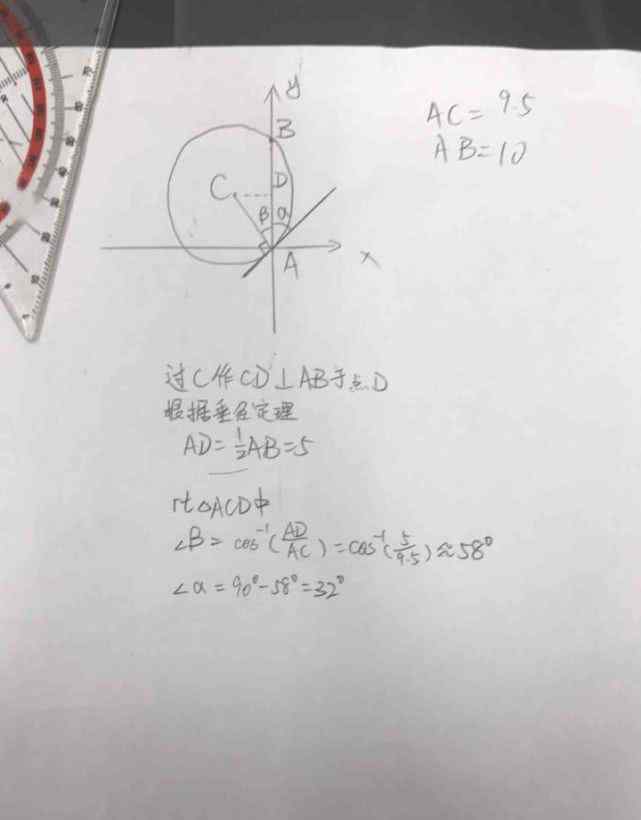 y
B
AC = 9.5
AB=10
C
D
β
α
A
x
过C作CD⊥AB于点D
根据垂径定理
AD=½AB=5
rt△ACD中
∠β = cos⁻¹(AD/AC)=cos⁻¹(5/9.5)≈58°
∠α = 90°-58°=32°